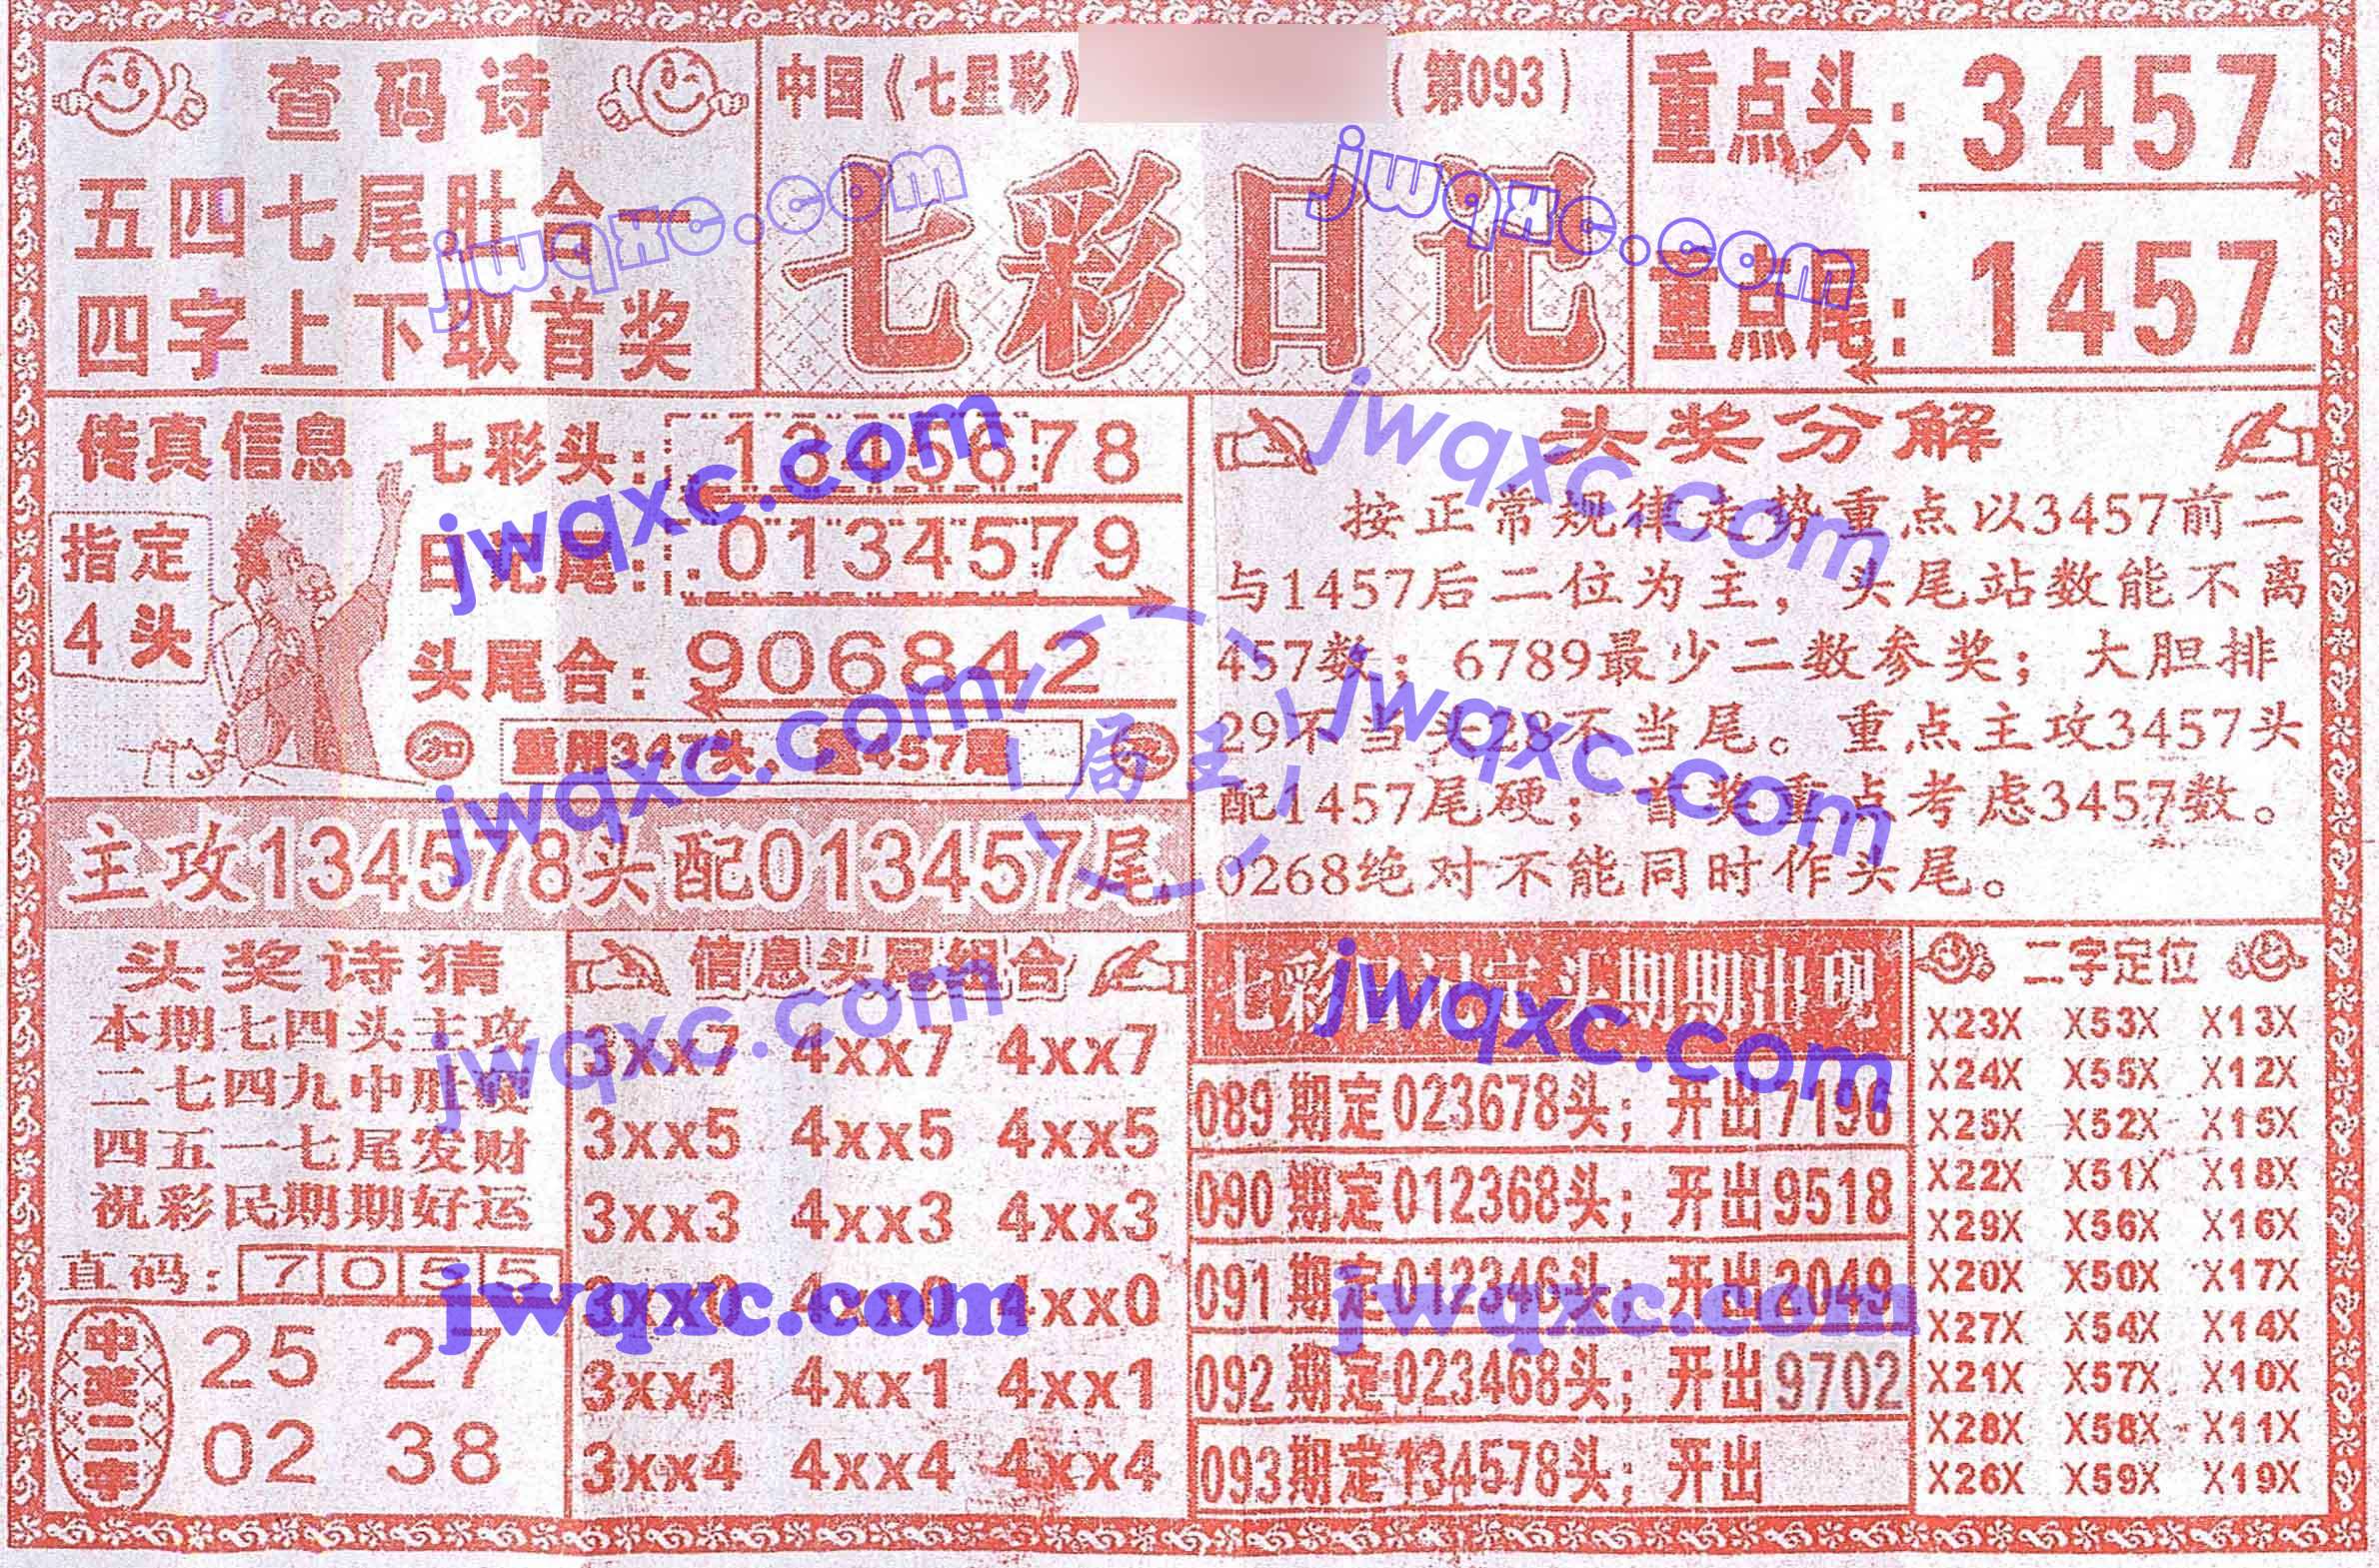 查码诗
五四七尾肚合一
四字上下取首奖
中国《七星彩》
(第093)
七彩日记
重点头：3457
重点尾：1457
传真信息
指定
4头
七彩头：1345678
日记尾：0134579
头尾合：906842
主攻134578头配013457尾
头奖分解
按正常规律走势重点以3457前二
与1457后二位为主，头尾站数能不离
457数；6789最少二数参奖；大胆排
29不当头28不当尾。重点主攻3457头
配1457尾硬；首奖重点考虑3457数。
0268绝对不能同时作头尾。
头奖诗猜
本期七四头主攻
二七四九中肚硬
四五一七尾发财
祝彩民期期好运
直码：7055
中奖二字
25 27
02 38
信息头尾组合
3xx7 4xx7 4xx7
3xx5 4xx5 4xx5
3xx3 4xx3 4xx3
3xx0 4xx0 4xx0
3xx1 4xx1 4xx1
3xx4 4xx4 4xx4
七彩日记定头期期出现
089期定023678头；开出7196
090期定012368头；开出9518
091期定012346头；开出2049
092期定023468头；开出9702
093期定134578头；开出
二字定位
X23X X53X X13X
X24X X55X X12X
X25X X52X X15X
X22X X51X X18X
X29X X56X X16X
X20X X50X X17X
X27X X54X X14X
X21X X57X X10X
X28X X58X X11X
X26X X59X X19X
jwqxc.com
jwqxc.com
jwqxc.com
jwqxc.com
jwqxc.com
jwqxc.com
jwqxc.com
jwqxc.com
jwqxc.com
jwqxc.com
jwqxc.com
jwqxc.com
局王